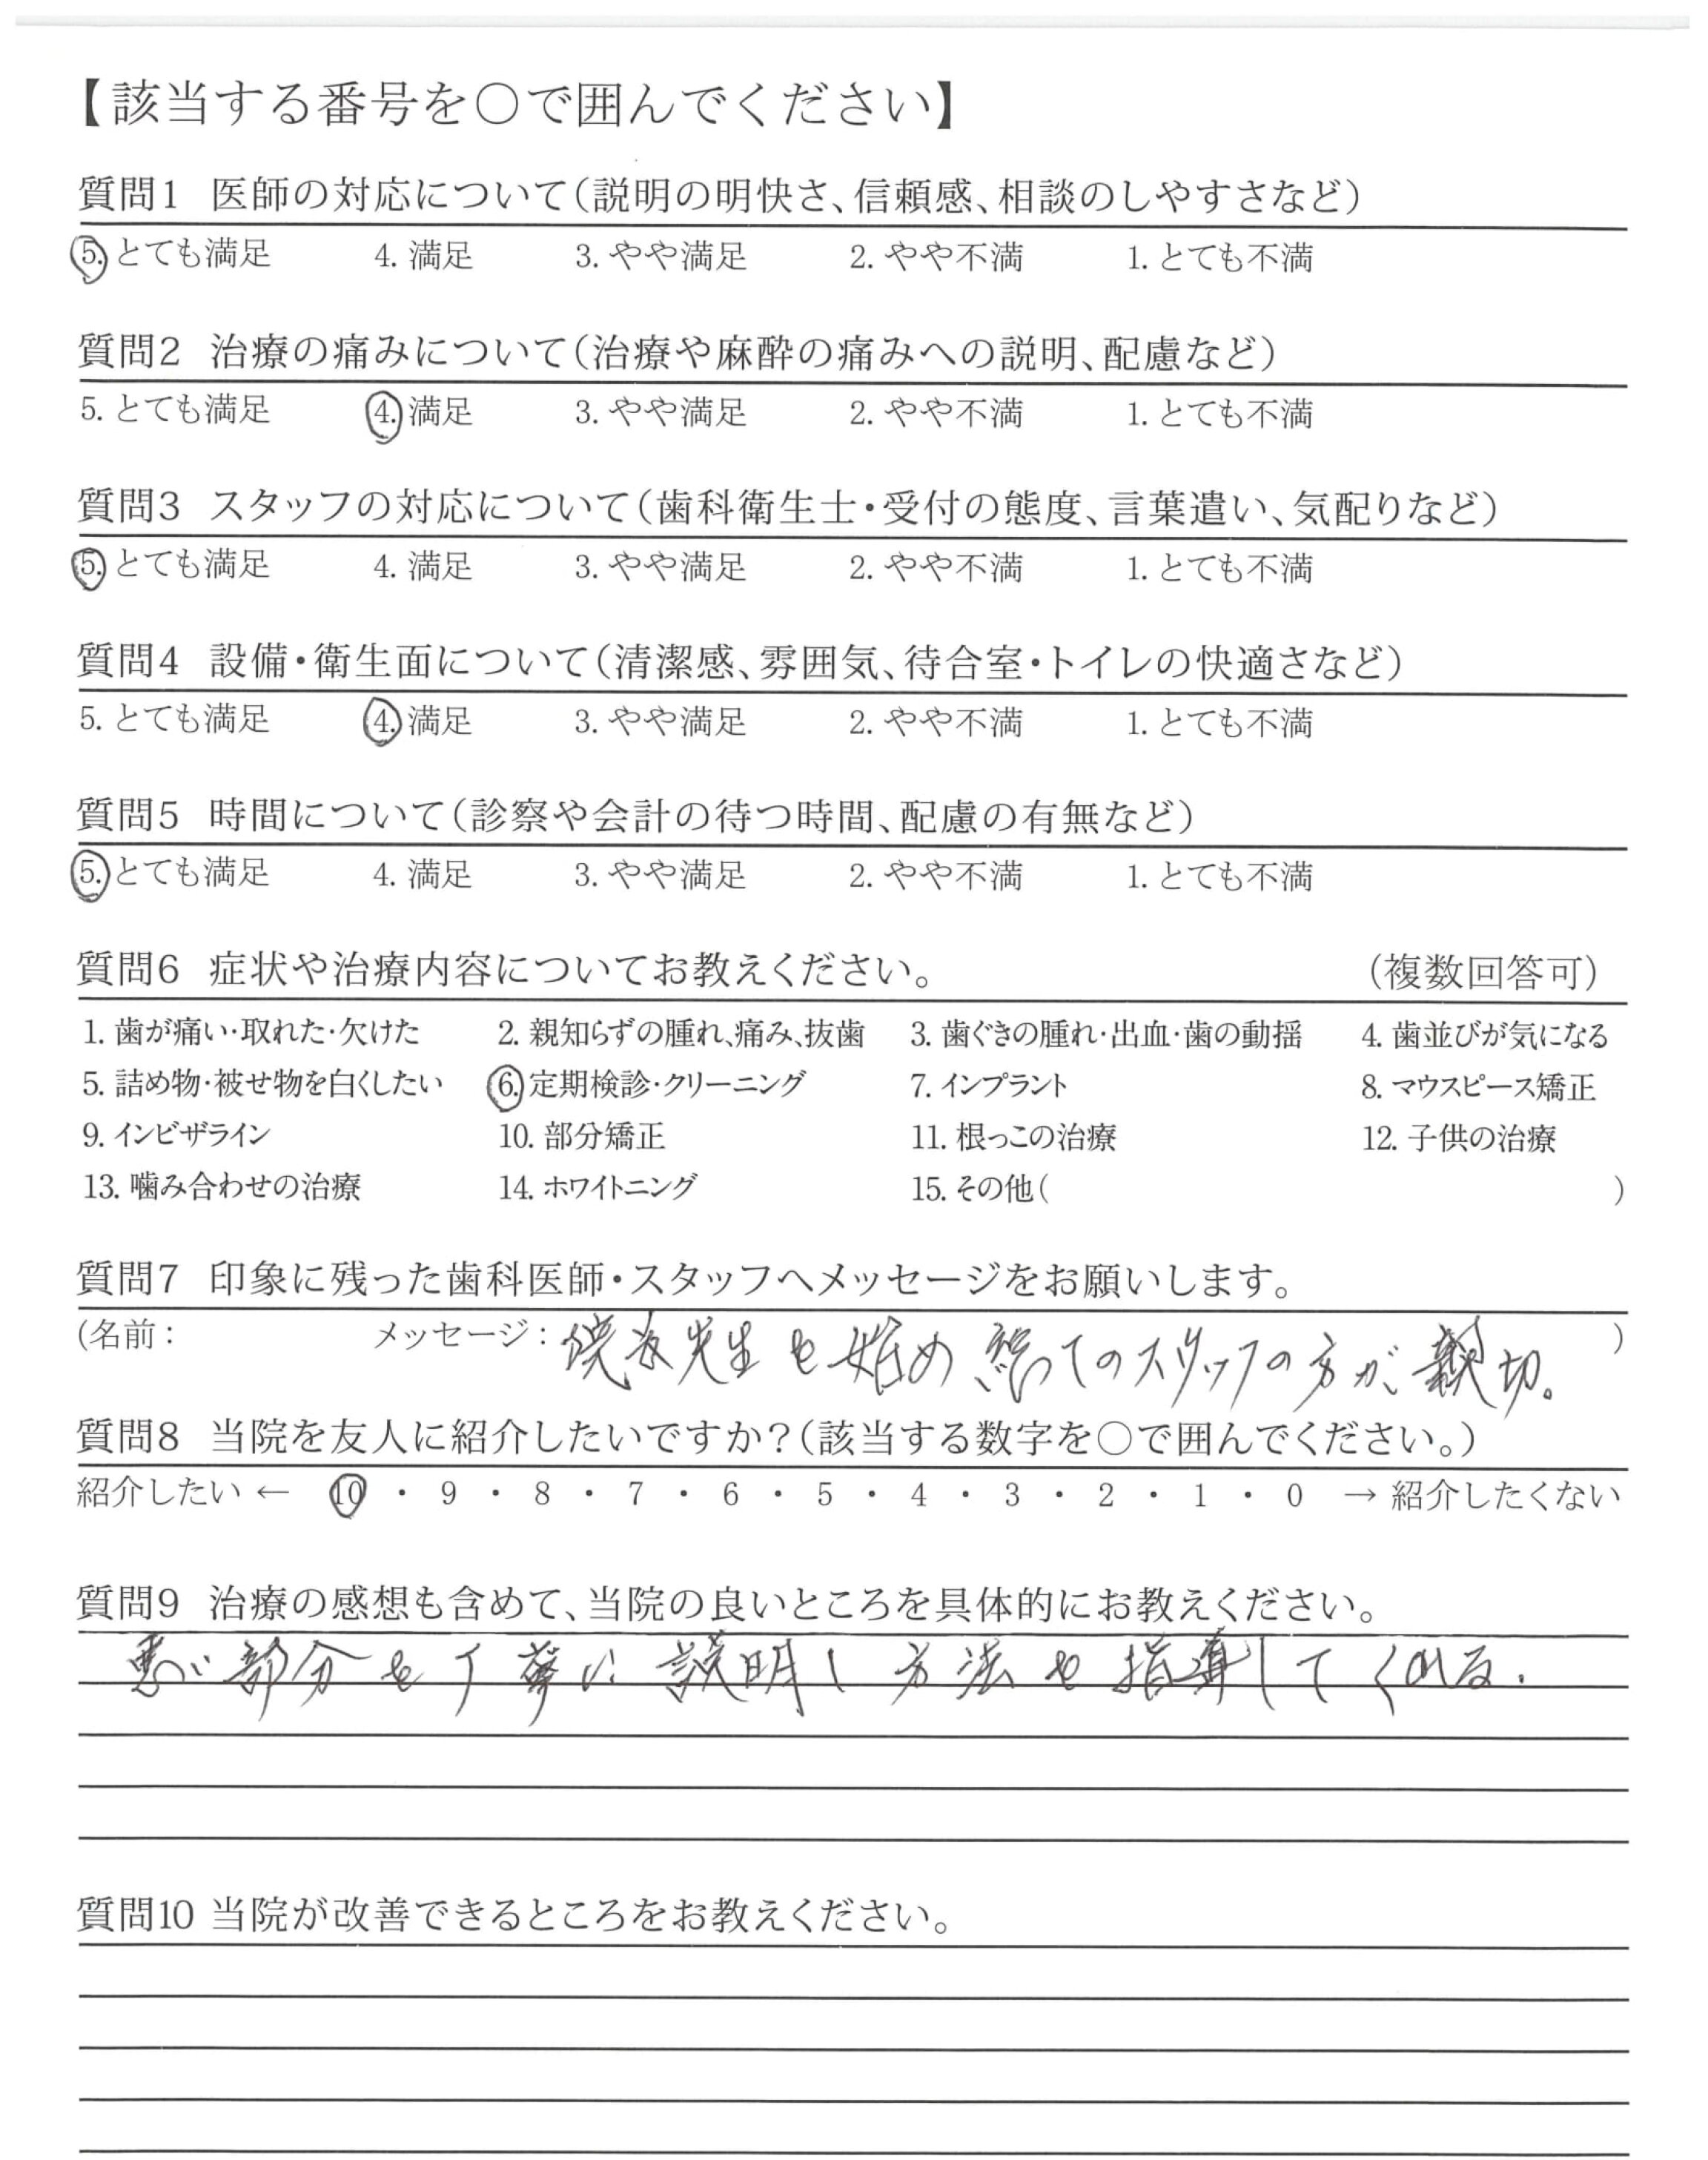 【該当する番号を○で囲んでください】
質問1 医師の対応について(説明の明快さ、信頼感、相談のしやすさなど)
5. とても満足 4. 満足 3. やや満足 2. やや不満 1. とても不満
質問2 治療の痛みについて(治療や麻酔の痛みへの説明、配慮など)
5. とても満足 4. 満足 3. やや満足 2. やや不満 1. とても不満
質問3 スタッフの対応について(歯科衛生士・受付の態度、言葉遣い、気配りなど)
5. とても満足 4. 満足 3. やや満足 2. やや不満 1. とても不満
質問4 設備・衛生面について(清潔感、雰囲気、待合室・トイレの快適さなど)
5. とても満足 4. 満足 3. やや満足 2. やや不満 1. とても不満
質問5 時間について(診察や会計の待つ時間、配慮の有無など)
5. とても満足 4. 満足 3. やや満足 2. やや不満 1. とても不満
質問6 症状や治療内容についてお教えください。 (複数回答可)
1. 歯が痛い・取れた・欠けた 2. 親知らずの腫れ、痛み、抜歯 3. 歯ぐきの腫れ・出血・歯の動揺 4. 歯並びが気になる
5. 詰め物・被せ物を白くしたい 6. 定期検診・クリーニング 7. インプラント 8. マウスピース矯正
9. インビザライン 10. 部分矯正 11. 根っこの治療 12. 子供の治療
13. 噛み合わせの治療 14. ホワイトニング 15. その他( )
質問7 印象に残った歯科医師・スタッフへメッセージをお願いします。
(名前: メッセージ: 先生を始め総てのスタッフの方が、親切。 )
質問8 当院を友人に紹介したいですか?(該当する数字を○で囲んでください。)
紹介したい ← 10 ・ 9 ・ 8 ・ 7 ・ 6 ・ 5 ・ 4 ・ 3 ・ 2 ・ 1 ・ 0 → 紹介したくない
質問9 治療の感想も含めて、当院の良いところを具体的にお教えください。
悪い部分を丁寧に説明し方法を指導してくれる.
質問10 当院が改善できるところをお教えください。